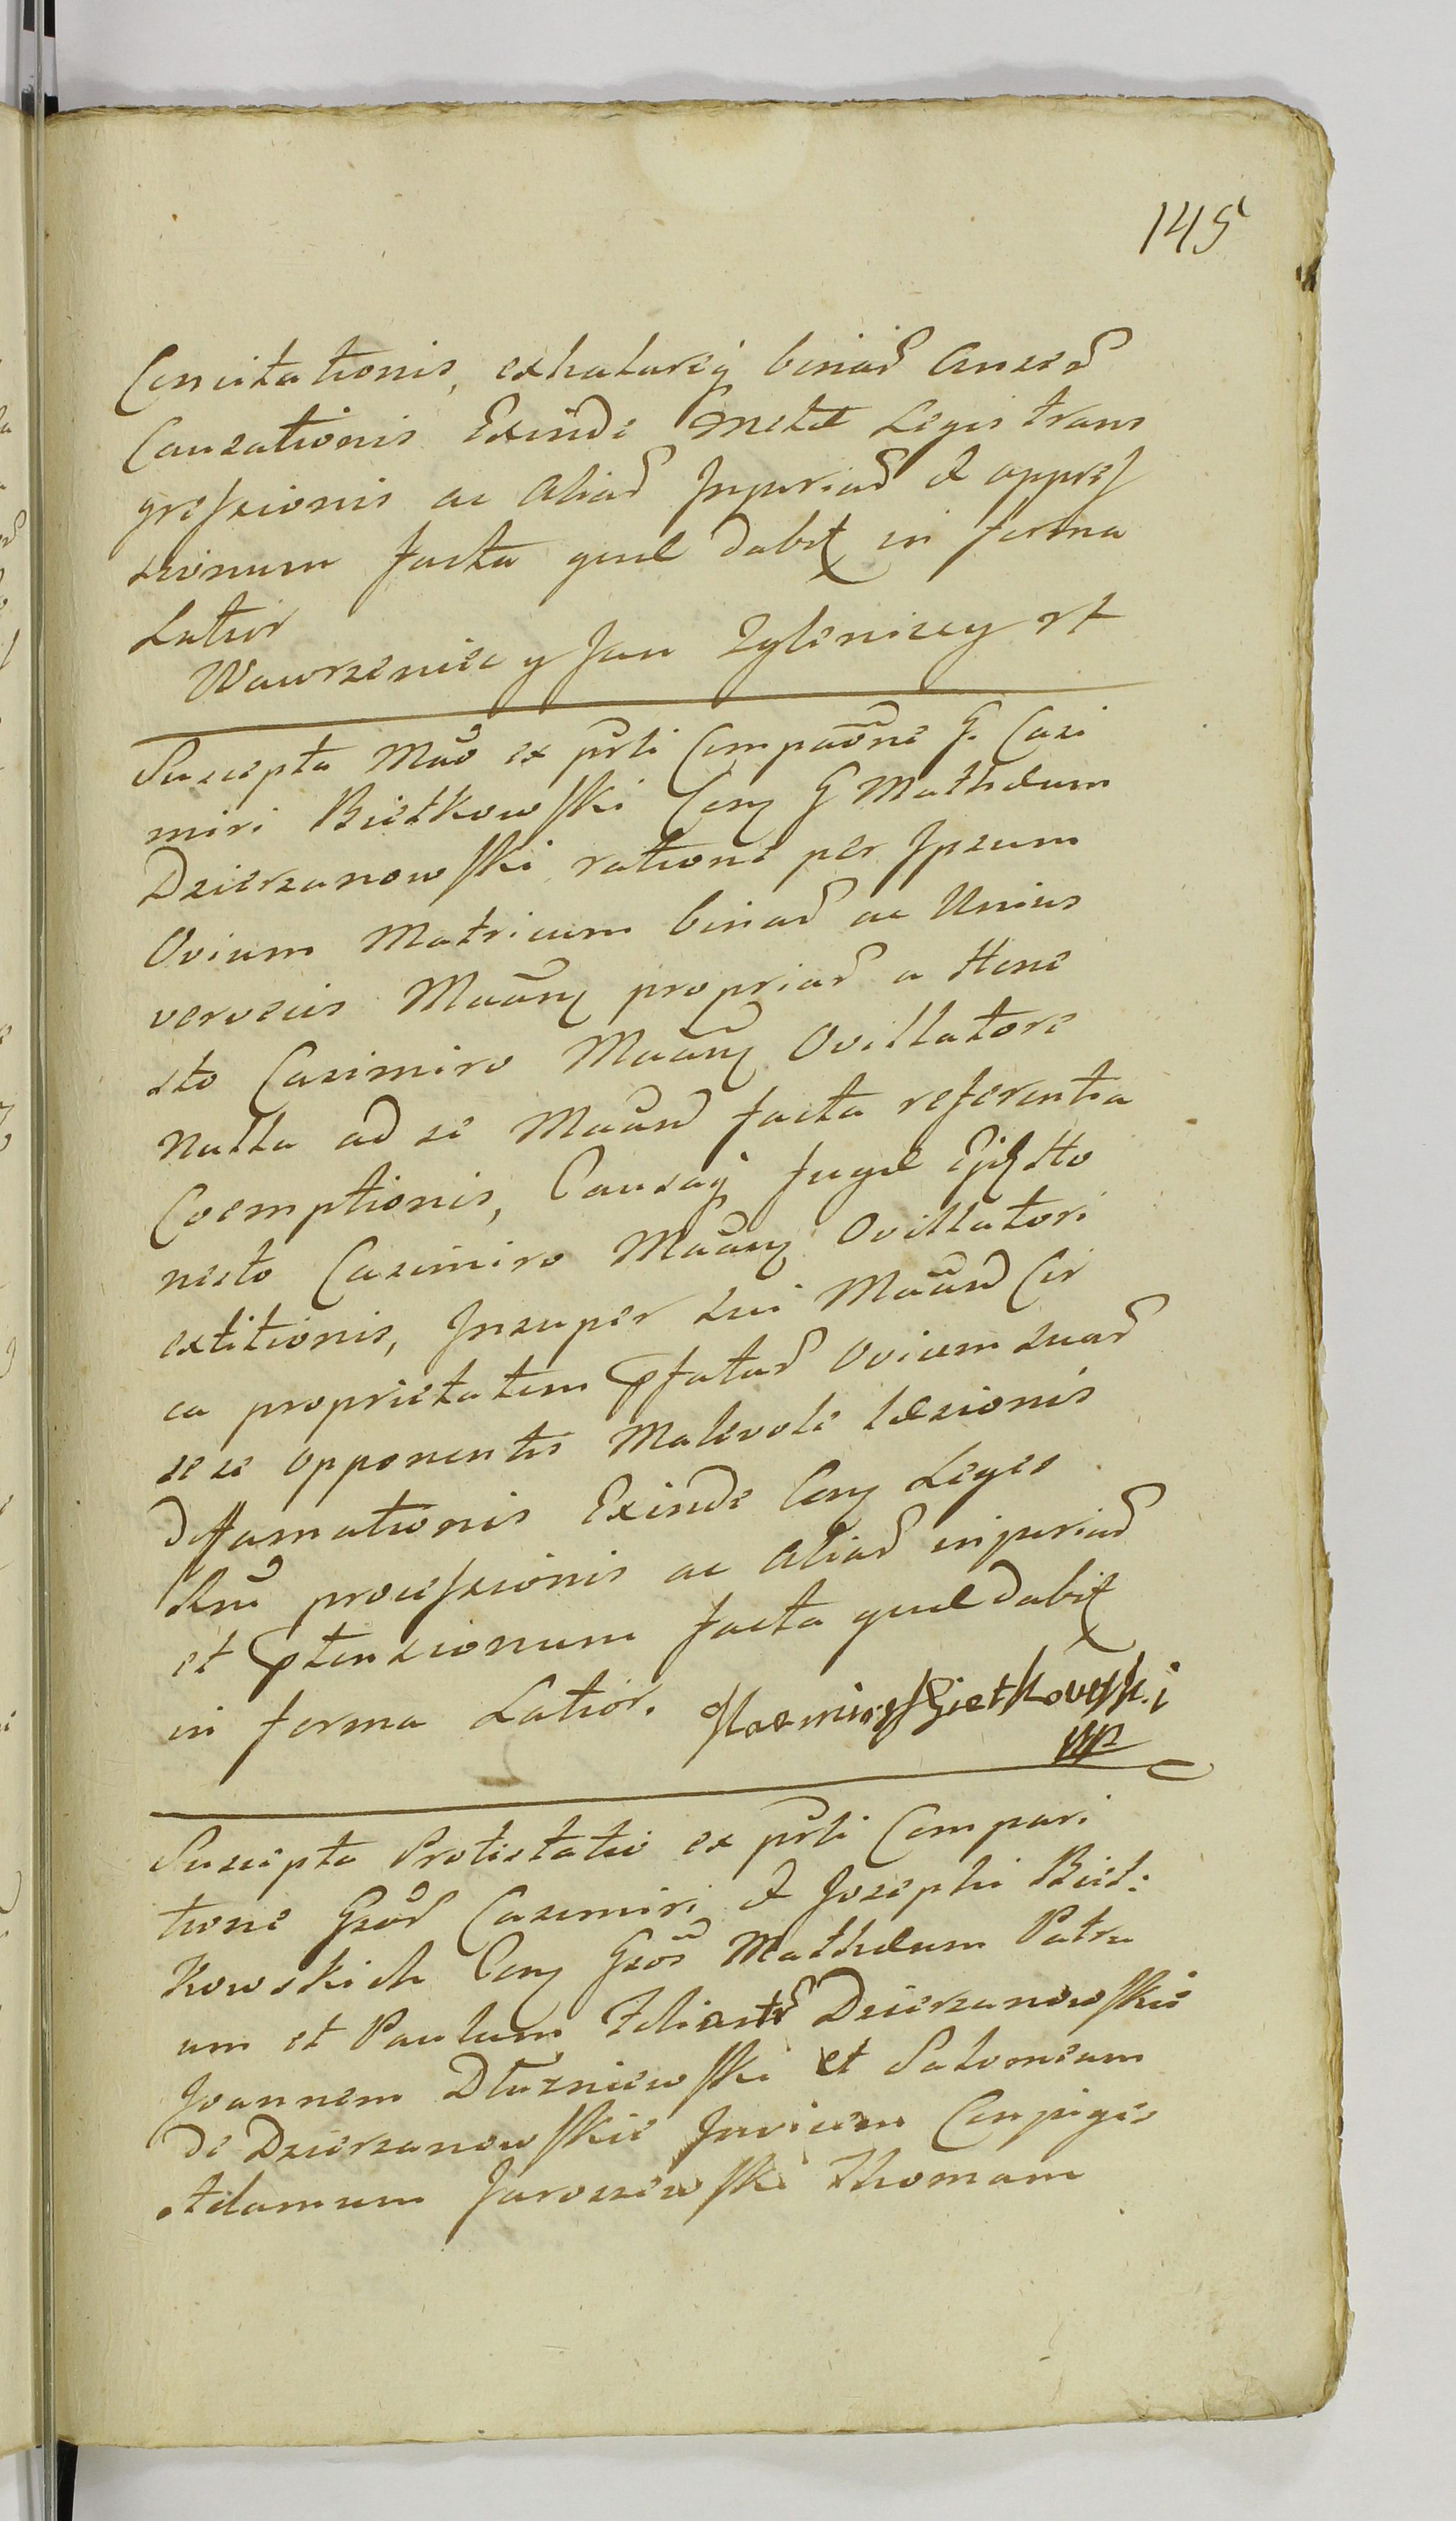 145
Concitationis, exhalareq binar Anser
Causationis Exinde metæ Legis trans
gressionis ac Aliar Injuriar & oppres
sionum facta quæ dabit in forma
Latior
Wawrzeniec y Jan Zgleniccy
Suscepta Mao ex prti Compaõne G. Casi
miri Bietkowski Con G Mathæum
Dzierzanowski ratione per Ipsum
Ovium Matricum binar ac Unius
vervecis Maãn propriar a Hone
sto Casimiro Maãn Ovillatore
nulla ad se Maãn facta referentia
Coemptionis, Causaq fugæ Ejd Ho
nesto Casimiro Maãn Ovillatori
extitionis, Insuper sui Maãn Cir
ca proprietatem pfatar Ovium suar
sese opponentis Malevole læsionis
Diffamationis Exinde Con Leges
Rni processionis ac Aliar injuriar
et ptensionum facta quæ dabit
in forma Latior. Kazmirz Bietkowski
mp
Suscepta Protestatio ex prti Compari
tione Gsor Casimiri & Josephi Biet:
kowskich Con Gsos Mathæum Patru
um et Paulum Dzierzanowskie
Joannem Dłuzniewski et Salomeam
de Dzierzanowskie Invicem Conjuges
Adamum Jaroszewski Thomam